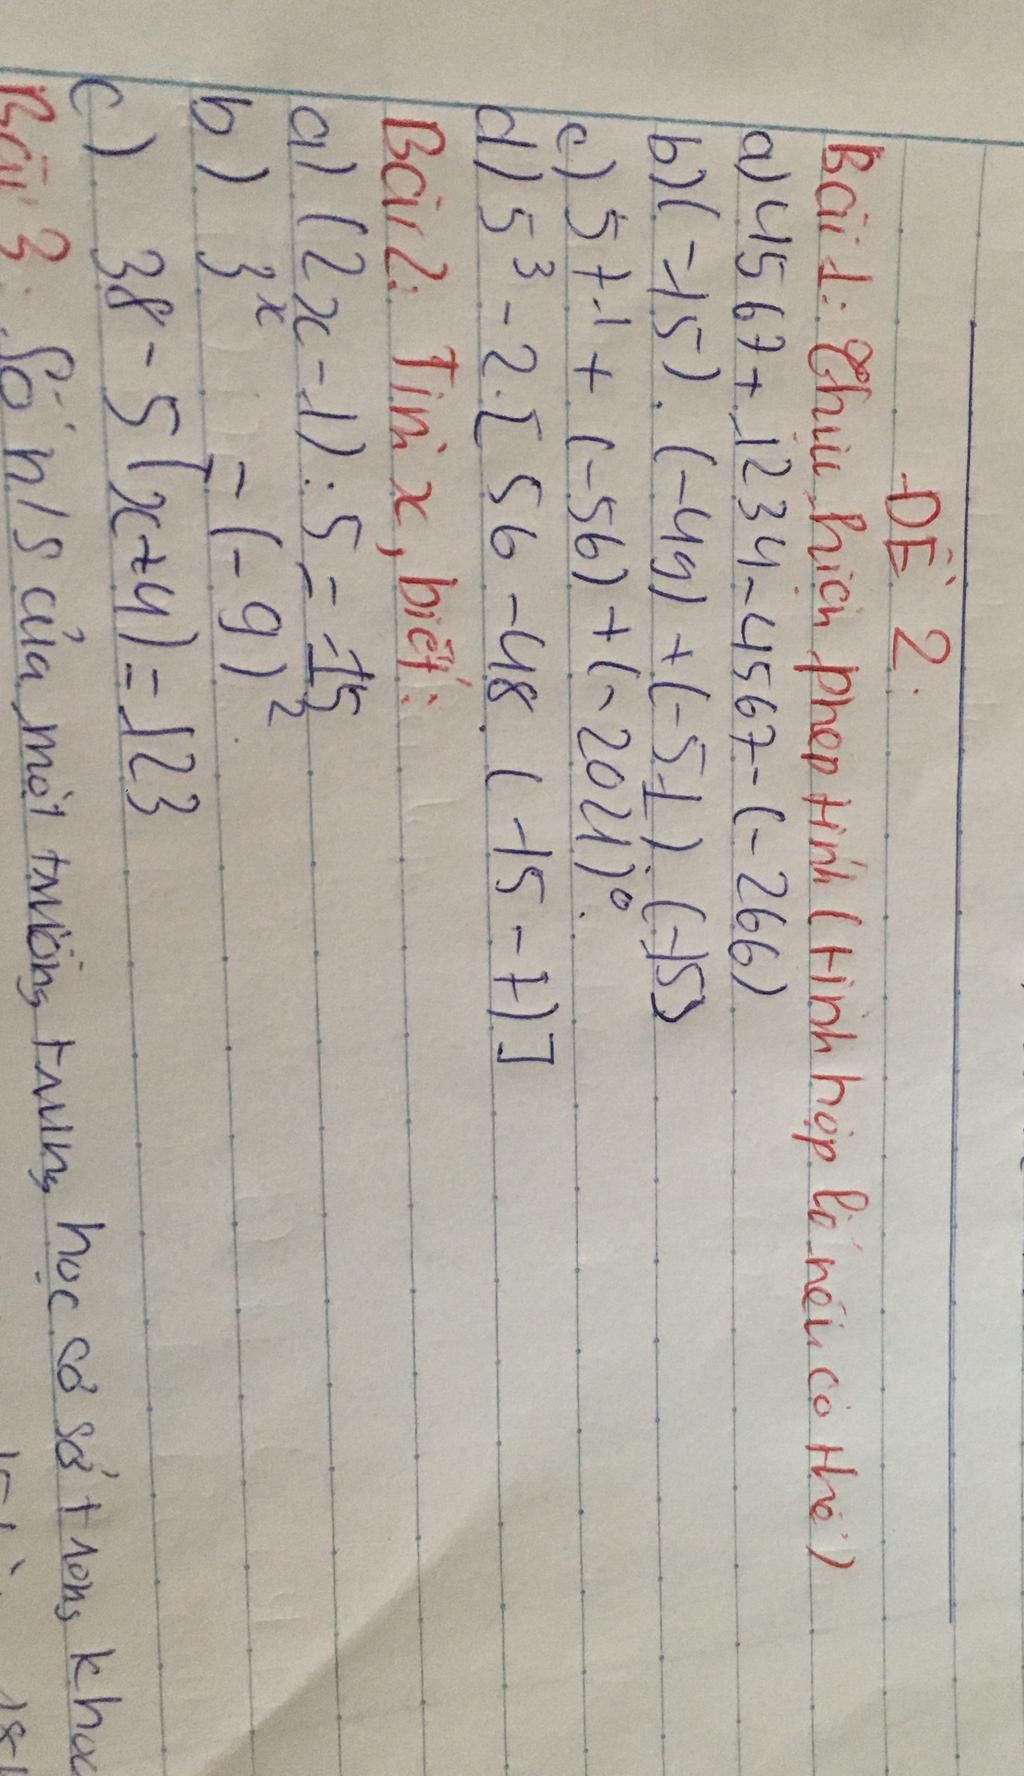 ĐỀ 2:
Bài 1: Thực hiện phép tính (tính hợp lí nếu có thể)
a) 4567 + 1234 - 4567 - (-266)
b) (-15). (-49) + (-51). (-15)
c) 57.1 + (-56) + (-2021)⁰.
d) 5³ - 2.[56 - 48. (-15 - 7)]
Bài 2: Tìm x, biết:
a) (2x - 1) : 5 = -15
b) 3ˣ = (-9)²
c) 38 - 5(x+4) = 123
Bài 3: Số h/s của một trường trung học cơ sở trong khoả